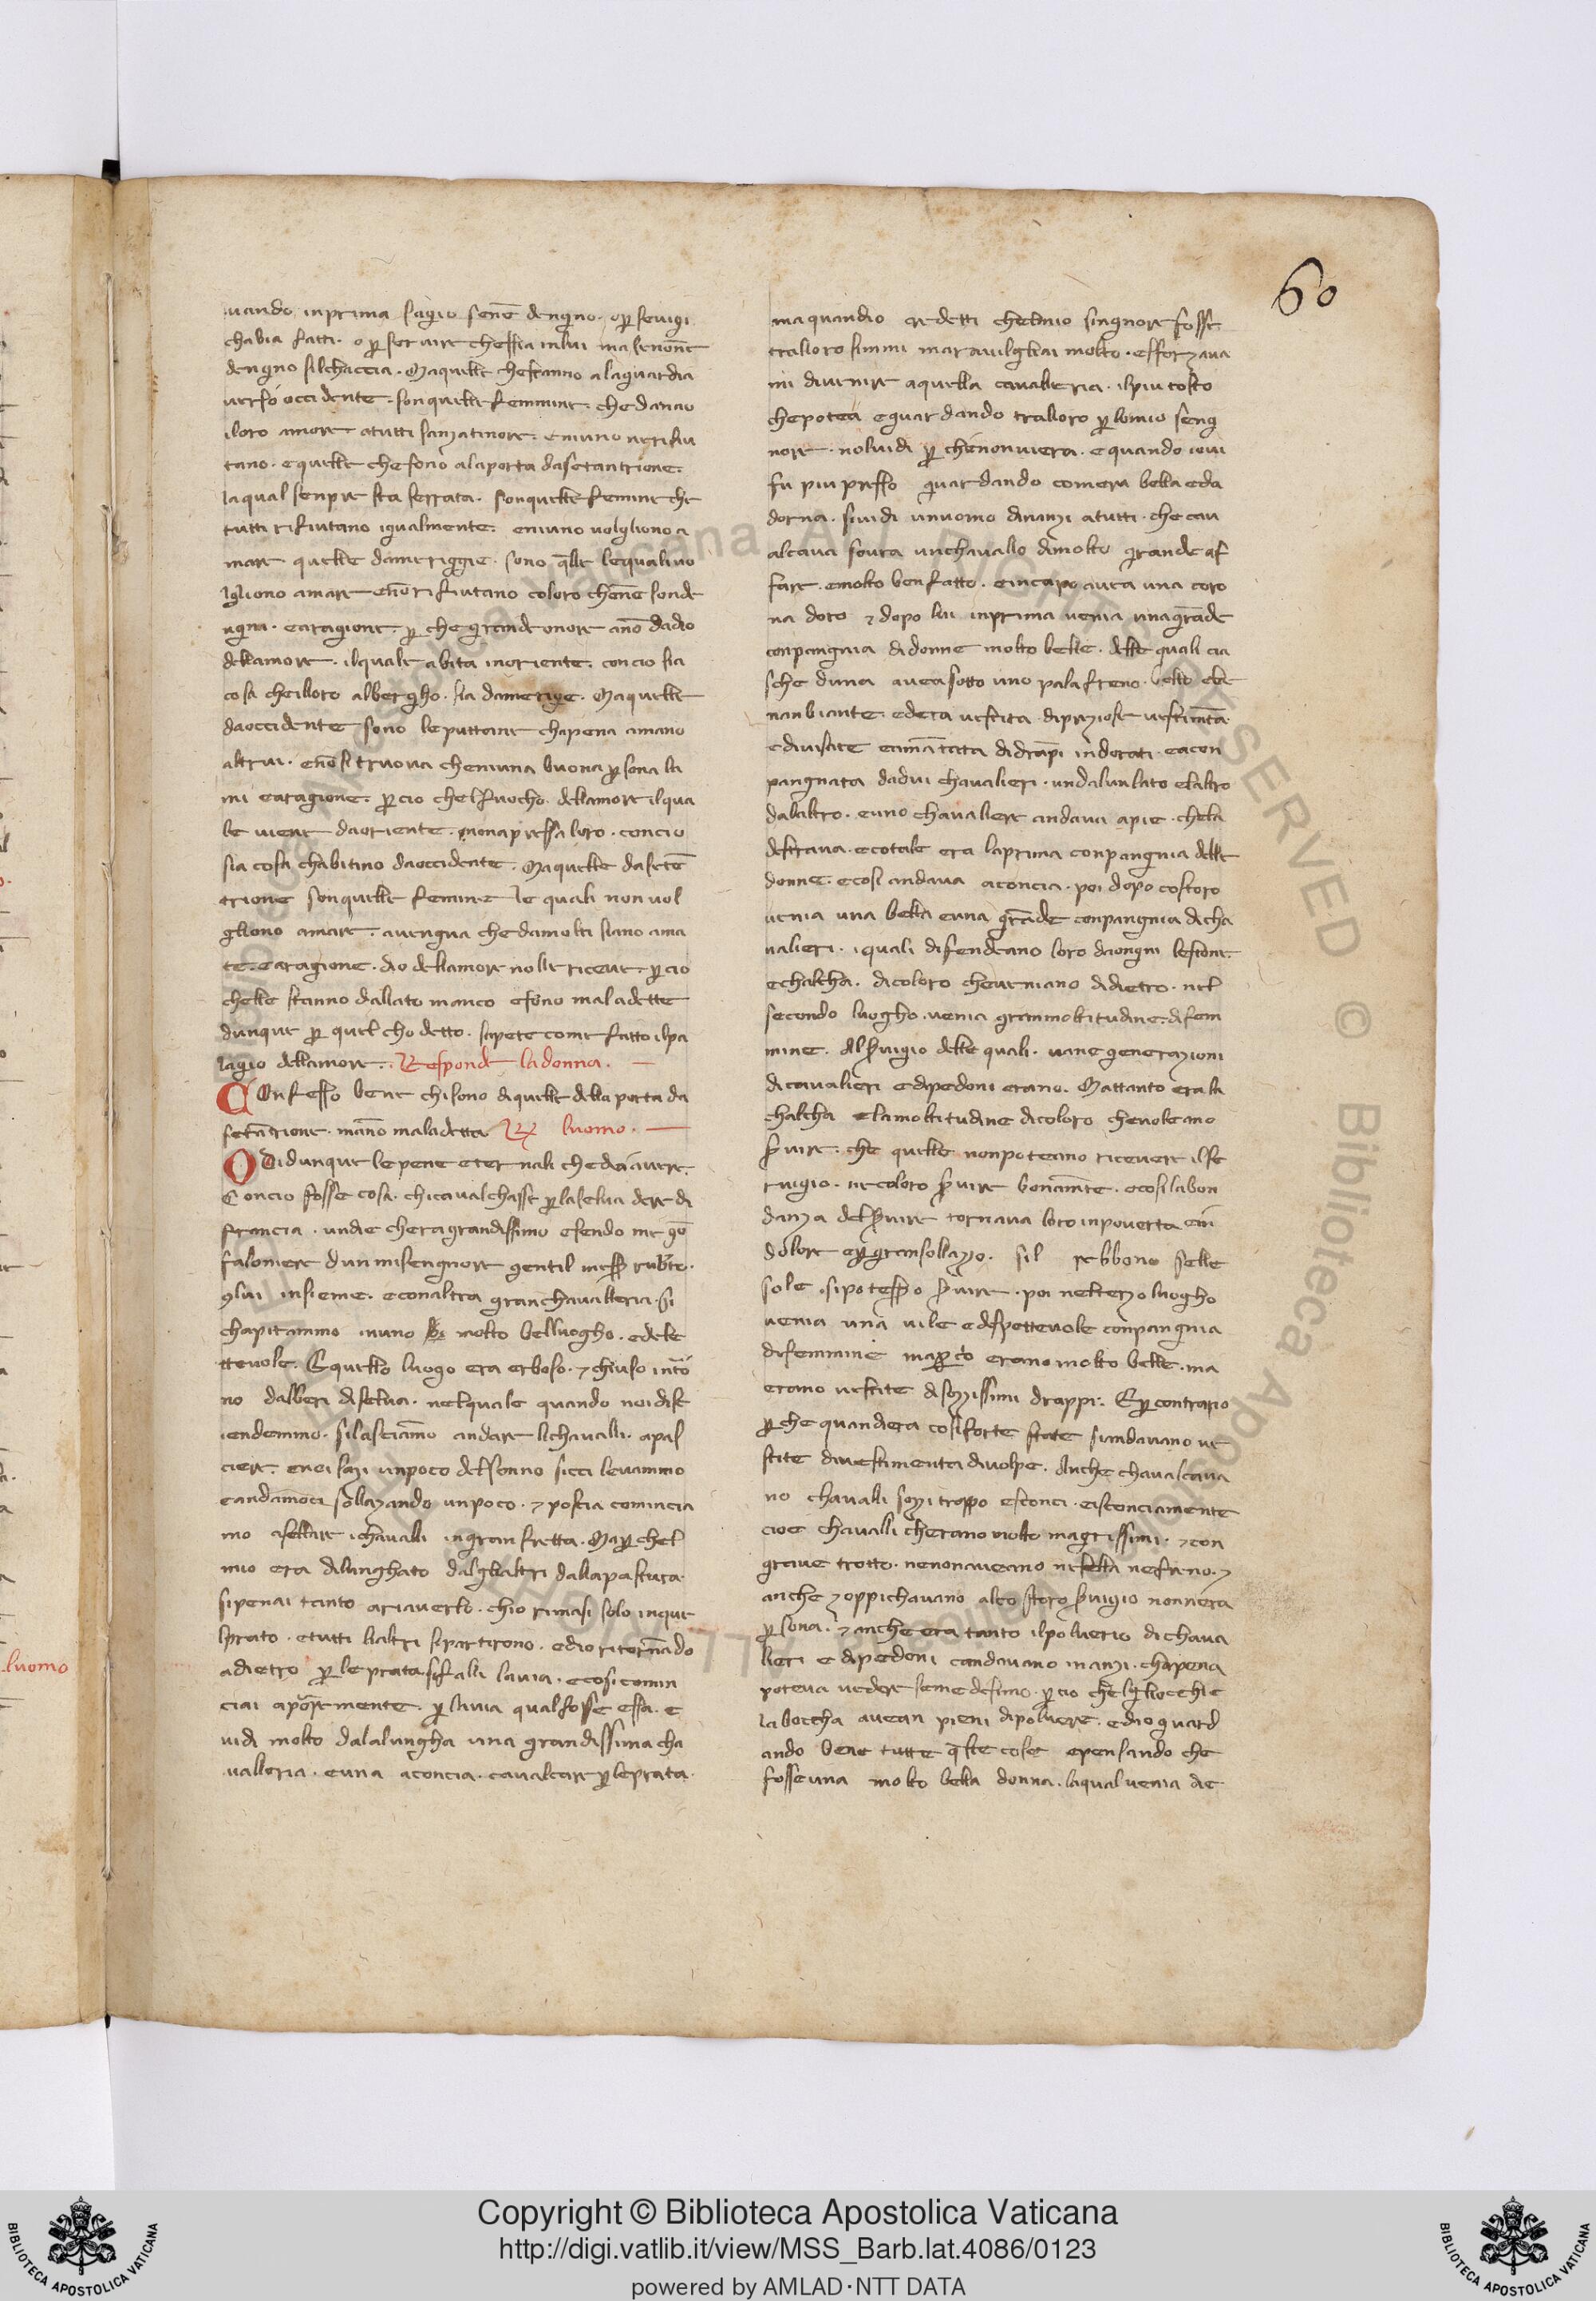 60
uando inprima sagio senē dengno. o ꝑ seuigi
chabia fatti. o ꝑ seruire chessia inlui ma senonne
dengno silchaccia. Maquelle chestanno alaguardia
uerso occidente. son quelle femmine. che danno
iloro amore atutti sanzatinore. eniuno nerifiu
tano. equelle che sono alaporta dasetantrione.
laqual senpre sta serrata. sonquelle femine che
tutti rifiutano igualmente. eniuno uolgliono a
mare quelle dameriggie. sono q̄lle lequaliuo
lgliono amare enō rifiutano coloro chenne sonde
ngni. earagione. ꝑ che grande onore anō dadio
dellamore. ilquale abita inoriente. concio sia
cosa cheilloro albergho. sia damerige. Maquelle
daoccidente sono le puttane chapena amano
altrui. enō si truoua cheniuna buona ꝑsona la
mi earagione. ꝑ cio chelfuocho. dellamore ilqua
le uiene daoriente. nonapressa loro. concio
sia cosa chabitino daoccidente. Maquelle dasetē
trione sonquelle femine le quali non uol
gliono amare. auengna chedamolti siano ama
te. earagione. dio dellamore nolle riceue. ꝑ cio
chelle stanno dallato manco esono maladette
dunque ꝑ quel cho detto. sapete come fatto ilpa
lagio dellamore. Responde ladonna.
COnfesso bene chi sono diquelle della porta da
setātrione. manō maladetta R luomo.
ODidunque le pene eternali che dei auere.
Concio fosse cosa. chicaualchasse ꝑ laselua dere di
francia. undie chera grandissimo esendo me gō
faloniere dun misengnore gentil messer rubto.
9lui insieme. econaltra granchaualleria. si
chapitammo inuno molto belluogho. edele
tteuole. Equello luogo era erboso. ⁊ chiuso intor
no dalberi diselua. nelquale quando noi disc
iendemmo. silasciāmo andare lichaualli. apas
ciere. enoi sazi unpoco delsonno sicci leuammo
eandāmoci sollazando unpoco. ⁊ poscia comincia
mo asellare ichaualli ingran fretta. Ma ꝑ chel
mio era dilunghato dalglialtri dallapastura.
sipenai tanto ariauerlo. chio rimasi solo inque
lprato. etutti lialtri sipartirono. edio ritornādo
adietro ꝑ le prata sifalli lauia. ecosi comin
ciai aporremente. ꝑ lauia qualfosse essa. e
uidi molto dalalungha una grandissima cha
ualleria. euna aconcia. caualcare ꝑ leprata.
ma quandio credetti chelmio singnore fosse
tralloro simmi marauilgliai molto. essforzaua
mi diuenire aquella caualleria. ilpiu tosto
chepotea eguardando tralloro ꝑ lomio seng
nore. noluidi ꝑ chenonuiera. equando ioui
fu piu presso guardando comera bella eda
dorna. siuidi unuomo dinanzi atutti. che cau
alcaua soura unchauallo dimolto grande af
fare. emolto ben fatto. eincapo auea una coro
na doro ⁊ dopo lui inprima uenia unagrāde
conpangnia didonne molto belle. delle quali cia
sche duna auea sotto uno palafreno. bello ebe
nanbiante. edera uestita. dipreziose uestimēta
ediuisate eamātata didrapi indorati. eacon
pangnata dadui chaualieri. undalunlato elaltro
dalaltro. euno chaualiere andaua apie. chela
destraua. ecotale era laprima conpangnia delle
donne. ecosi andaua aconcia. poi dopo costoro
uenia una bella euna grāde conpangnia dicha
ualieri. iquali difendeano loro daongni lesione
echalcha. dicoloro cheueniano didietro. nel
secondo luogho. uenia granmoltitudine. difem
mine. Al seruigio delle quali. uarie generazioni
dicaualieri edipedoni erano. Mattanto erala
chalcha elamoltitudine dicoloro cheuoleano
seruire. che quelle nonpoteano riceuere ilse
ruigio. ne coloro seruire bonamēte. ecosilabon
danza delseruire tornaua loro inpouerta ein
dolore e ꝑ gransollazo. sil rebbono selle
sole. sipotesso seruire. poi nelterzo luogho
uenia una uile edispetteuole conpangnia
difemmine ma ꝑ certo erano molto belle. ma
erano uestite disozissimi drappi. E ꝑ contrario
ꝑ che quandiera cosi forte state siandauano ue
stite diuestimenta diuolpe. Anche chaualcaua
no chaualli sozi troppo esconci. eisconciamente
cioe chaualli cherano molto magrissimi. ⁊ con
graue trotto. nenonaueano nesella nefreno. ⁊
anche zoppichauano aloro storo seruigio nonniera
ꝑsona. ⁊ anche era tanto ilpoluerio dichaua
lieri edipedoni candauano inanzi. chapena
poteua uedere semedesimo. ꝑ cio chelgliocchie
laboccha auean pieni dipoluere. edio guard
ando bene tutte q̄ste cose epensando che
fosseuna molto bella donna. laqual uenia die
luomo
Copyright © Biblioteca Apostolica Vaticana
http://digi.vatlib.it/view/MSS_Barb.lat.4086/0123
powered by AMLAD·NTT DATA